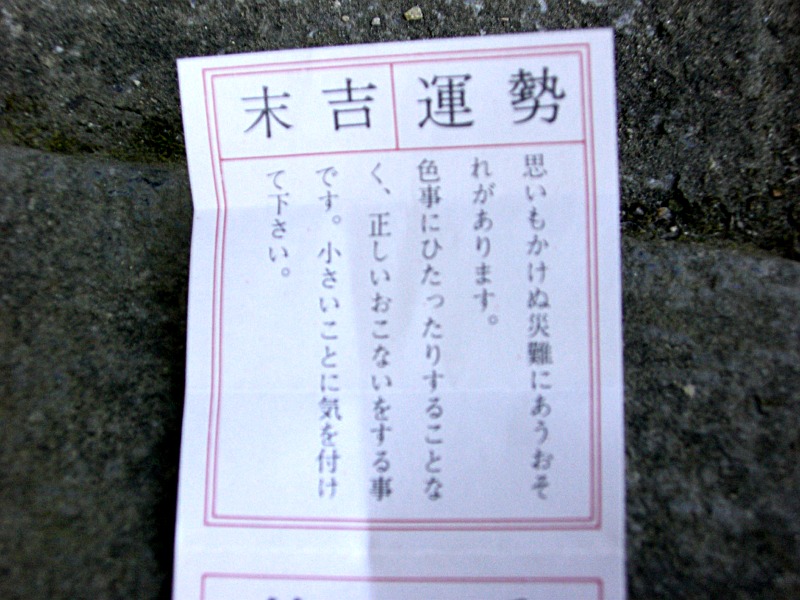 運勢
末吉
思いもかけぬ災難にあうおそ
れがあります。
色事にひたったりすることな
く、正しいおこないをする事
です。小さいことに気を付け
て下さい。